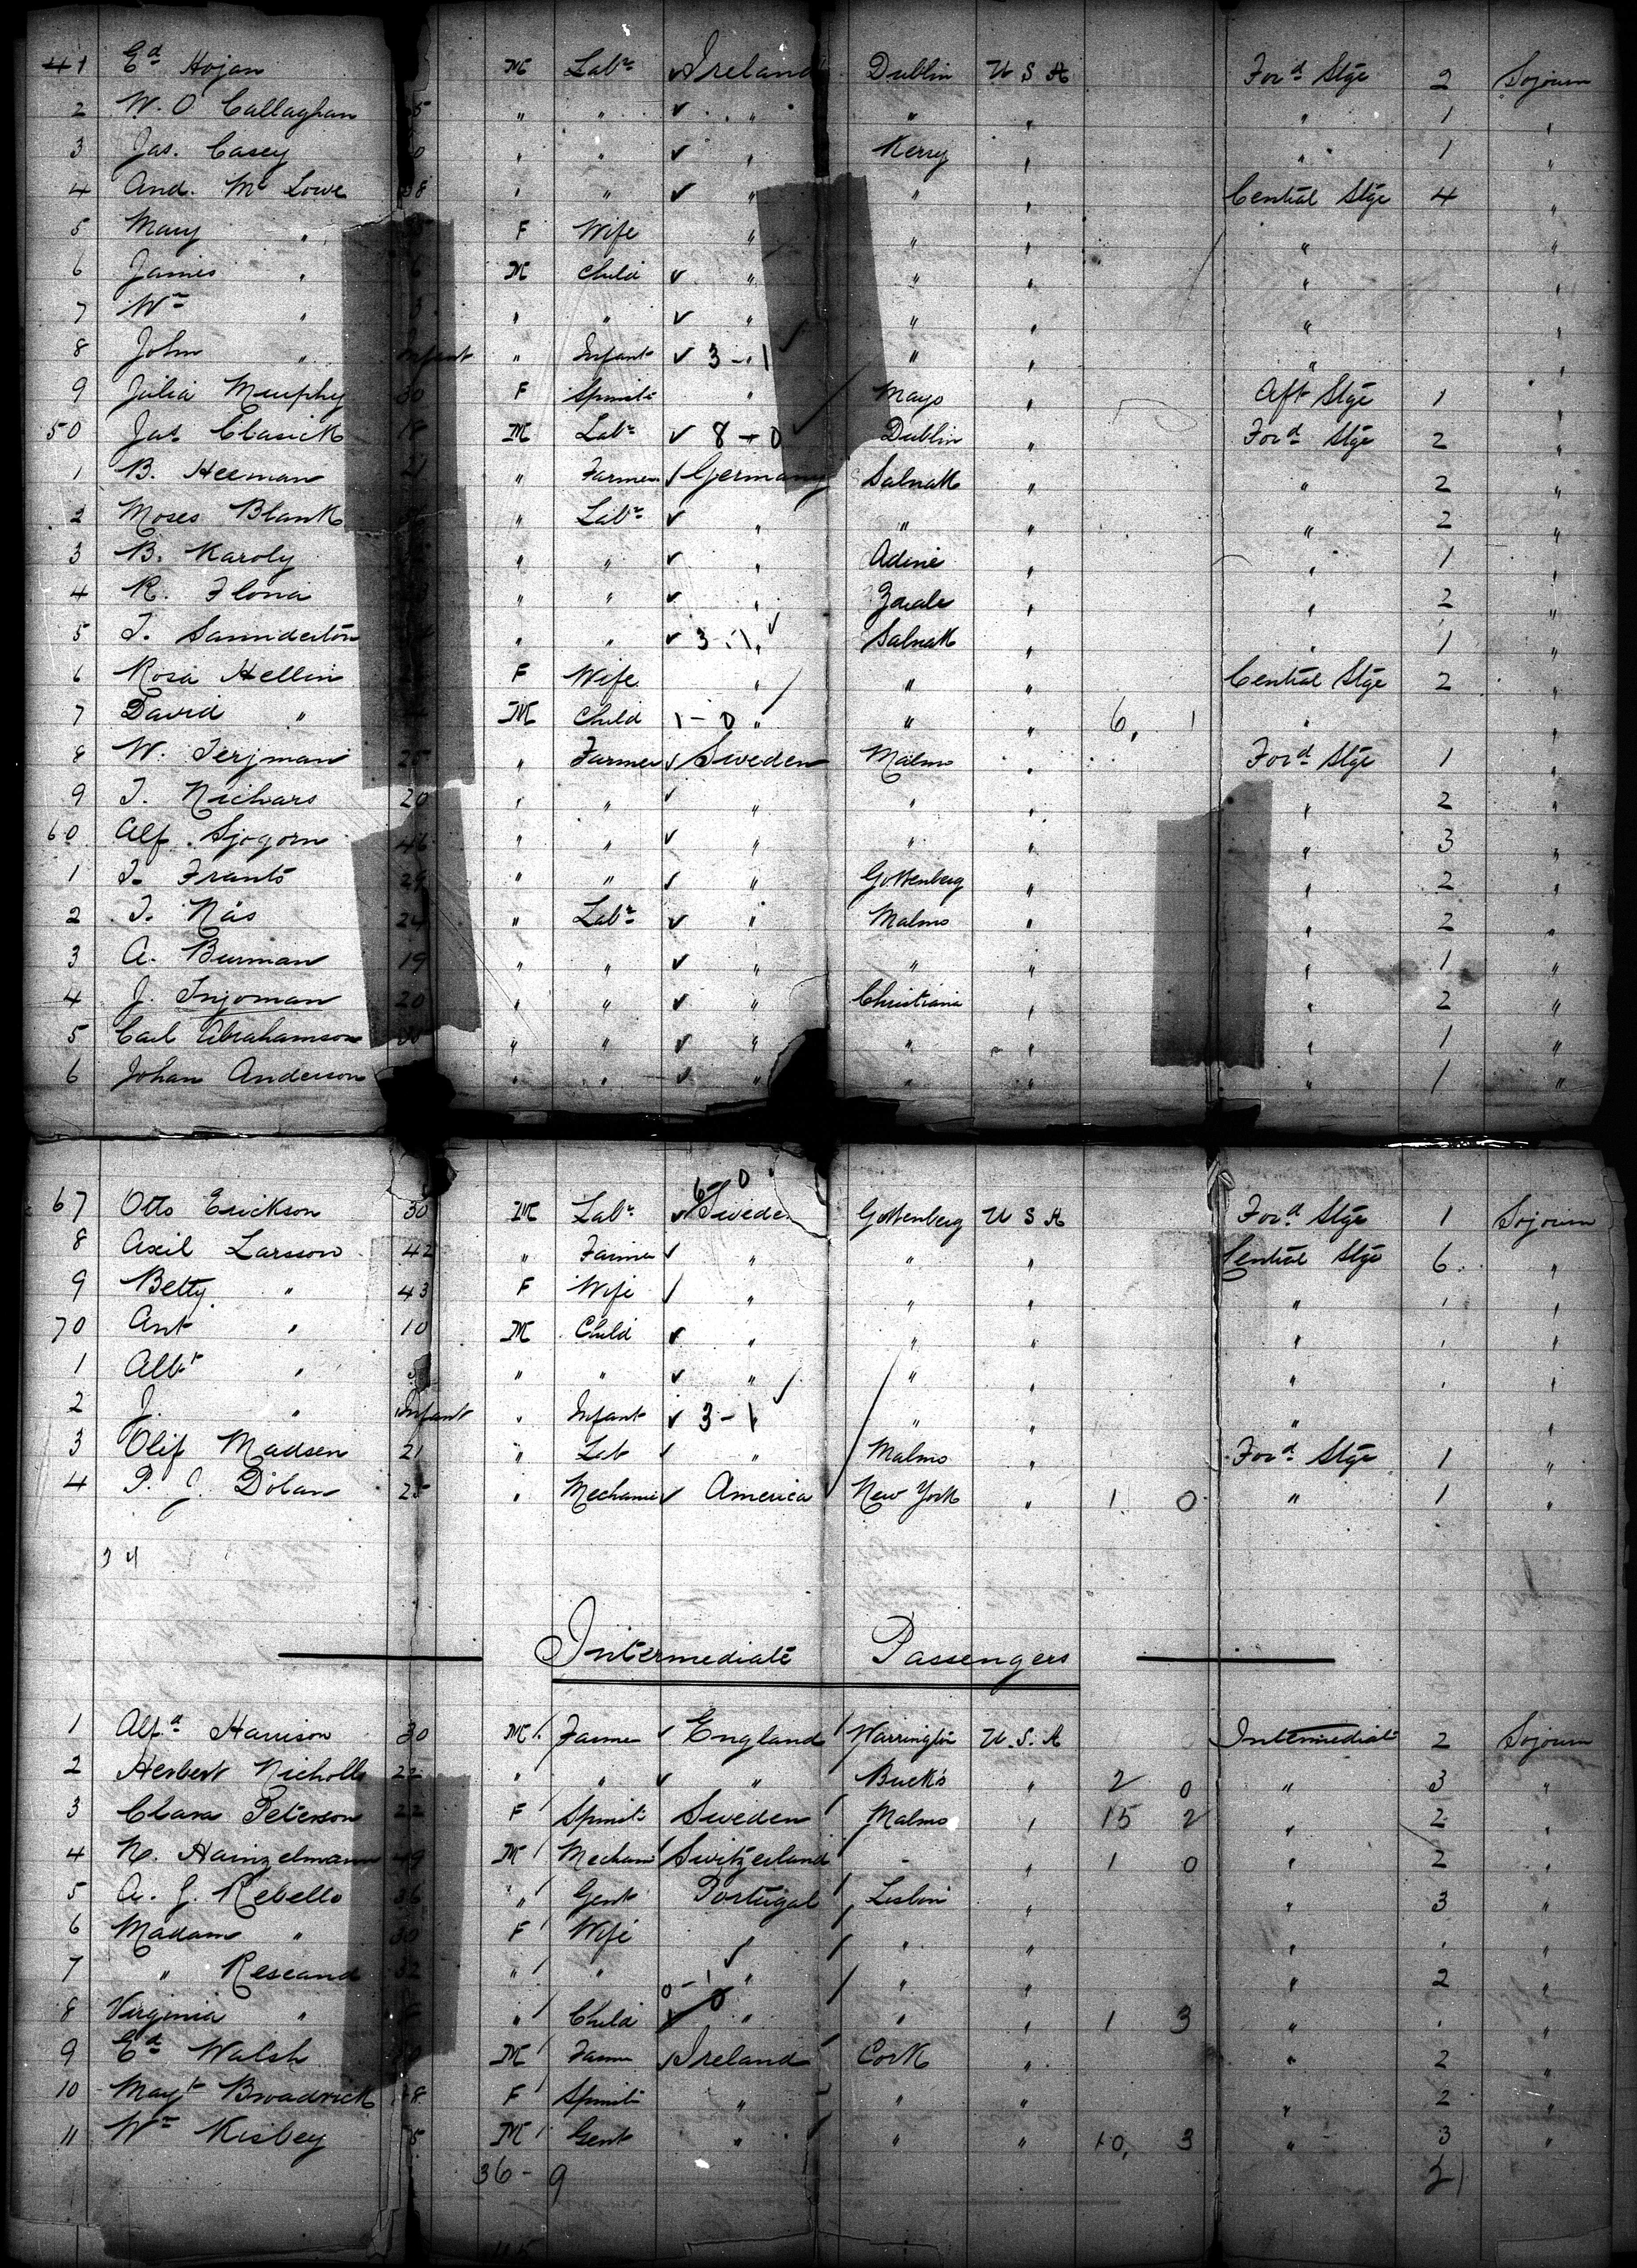 41 Ed Hojan M Labr Ireland Dublin U S A Ford Stge 2 Sojourn
2 W. O Callaghan 5 " " " " " " 1 "
3 Jas. Casey 0 " " " Kerry " " 1 "
4 And. Mc Lowe 38 " " " " " Central Stge 4 "
5 Mary " F Wife " " " " "
6 James " 6 M Child " " " " "
7 Wm " 3 " " " " " " "
8 John " Infant " Infant 3 - 1 " " " "
9 Julia Murphy 30 F Spinste " Mayo " Aft Stge 1 "
50 Jas Clasick 18 M Labr 8 - 0 Dublin " Ford Stge 2 "
1 B. Heeman 21 " Farmer Germany Salnatt " " 2 "
2 Moses Blank " Labr " " " " 2 "
3 B. Karoly " " " Adine " " 1 "
4 R. Ilona " " " " " 2 "
5 T. Saunderton " " 3 - 1 " Salnatt " " 1 "
6 Rosa Hellin F Wife " " " Central Stge 2 "
7 David " M Child 1 - 0 " " " 6, 1 " "
8 W. Terjman 25 " Farmer Sweden Malmo " Ford Stge 1 "
9 T. Nichars 20 " " " " " " 2 "
60 Alf. Sjogorn 46 " " " " " " 3 "
1 T. Frants 29 " " " Gottenberg " " 2 "
2 T. Nas 24 " Labr " Malmo " " 2 "
3 A. Burman 19 " " " " " " 1 "
4 J. Injoman 20 " " " Christiania " " 2 "
5 Carl Abrahamson " " " " " " 1 "
6 Johan Anderson " " " " " " 1 "
6 - 0
67 Otto Erickson 30 M Labr Sweden Gottenberg U S A Ford Stge 1 Sojourn
8 Axil Larsson 42 " Farmer " " " Central Stge 6 "
9 Betty " 43 F Wife " " " " " "
70 Ant " 10 M Child " " " " " "
1 Albt " " " " " " " " "
2 J. " Infant " Infant 3 - 1 " " " "
3 Olif Madsen 21 " Lab " Malmo " Ford Stge 1 "
4 P. J. Dolan 25 " Mechanic America New York " 1 0 " 1 "
34
Intermediate Passengers
1 Alfd Harrison 30 M Farmer England Warrington U. S. A Intermediate 2 Sojourn
2 Herbert Nicholls 22 " " " Bucks " 2 0 " 3 "
3 Clara Peterson 22 F Spinste Sweden Malmo " 15 2 " 2 "
4 N. Hainzelmann 49 M Mechani Switzerland - " 1 0 " 2 "
5 A. J. Rebello 36 " Gent Portugal Lisbon " 3 "
6 Madam " 30 F Wife " " " " "
7 " Rescand 32 " " 0 - 1 " " " " 2 "
8 Virginia " " Child 0 " " " 1 3 " " "
9 Ed Walsh M Farme Ireland Cork " " 2 "
10 Mayt Broadrick 8 F Spinste " " " " 2 "
11 Wm Kisbey 5 M Gent " " " 10, 3 " 3 "
36 - 9 21